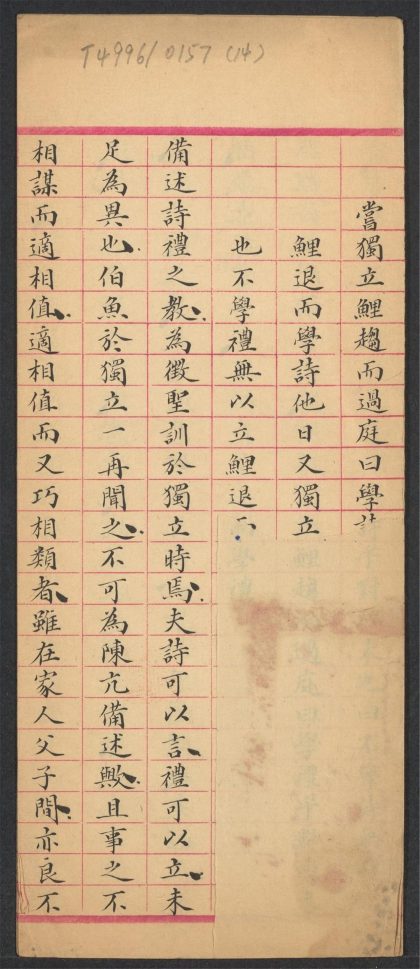 T4996/0157 (14)
嘗獨立鯉趨而過庭曰學
鯉退而學詩他日又獨立
也不學禮無以立鯉退
備述詩禮之教、為徵聖訓於獨立時焉、夫詩可以言、禮可以立、未
足為異也、伯魚於獨立一再聞之、不可為陳亢備述歟、且事之不
相謀而適相值、適相值而又巧相類者、雖在家人父子間、亦良不